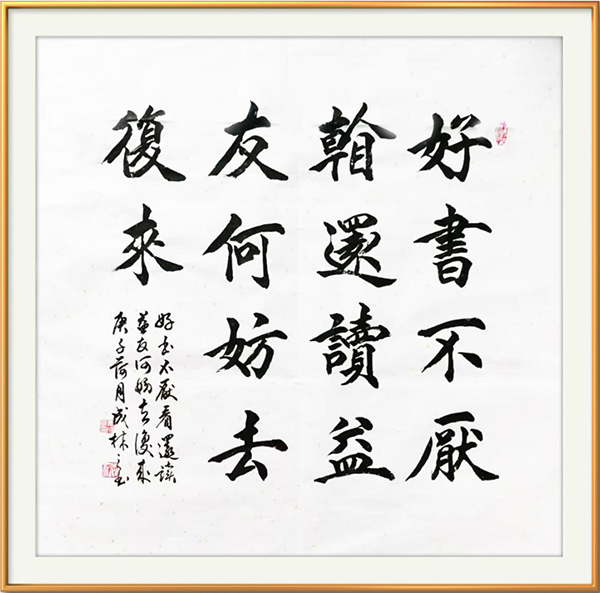 好書不厭
看還讀益
友何妨去
復來
好书不厭看還讀
益友何妨去復來
庚子荷月成林书